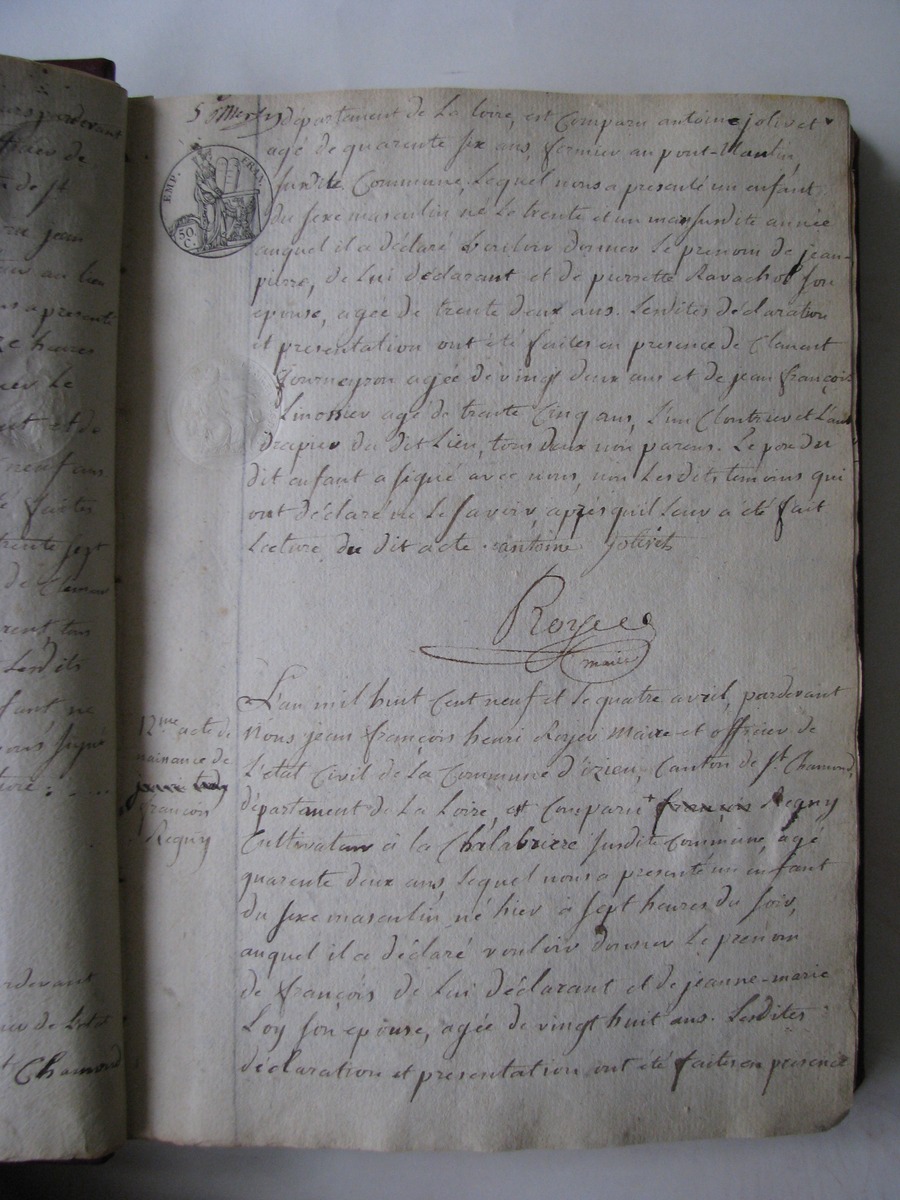 département de La Loire, est Comparu antoine jolivet
EMP. FRAN.
50 C.
agé de quarente six ans, fermier au pont-Nantin,
susdite Commune. Lequel nous a presenté un enfant
du sexe masculin né Le trente et un mars susdite année
auquel il a déclaré vouloir donner Le prenom de jean-
pierre, de Lui declarant et de pierrette Ravachol son
epouse, agée de trente deux ans. Lesdites déclaration
et presentation ont été faites en presence de Clement
Journeyron agée de vingt deux ans et de jean françois
Limosier agé de trente Cinq ans, L'un Cloutier et L'autre
drapier du dit Lieu, tous deux non parens. Le pere du
dit enfant a signé avec nous, non Les dits temoins qui
ont déclaré ne Le savoir, après qu'il Leur a été fait
Lecture du dit acte. antoine Jolivet
Royer
maire
12me acte de
naissance de
françois
Regny
L'an mil huit Cent neuf et le quatre avril, pardevant
Nous jean françois henri Royer Maire et officier de
L'etat Civil de La Commune d'izieu, Canton de St. Chamond,
département de La Loire, est Comparu + françois Regny
Cultivateur à la Chalabriere susdite Commune, agé
quarente deux ans, Lequel nous a presenté un enfant
du sexe masculin, né hier à sept heures du soir,
auquel il a déclaré vouloir donner Le prenom
de françois de Lui déclarant et de jeanne-marie
Loy son epouse, agée de vingt huit ans. Lesdites
déclaration et presentation ont été faites en presence
pardevant
officier de
de St.
jean
au lieu
a presenté
heures
Le
et de
neuf ans
faites
trente sept
de Clement
tous
Lesdits
ne
signé
pardevant
de L'etat
St Chamond